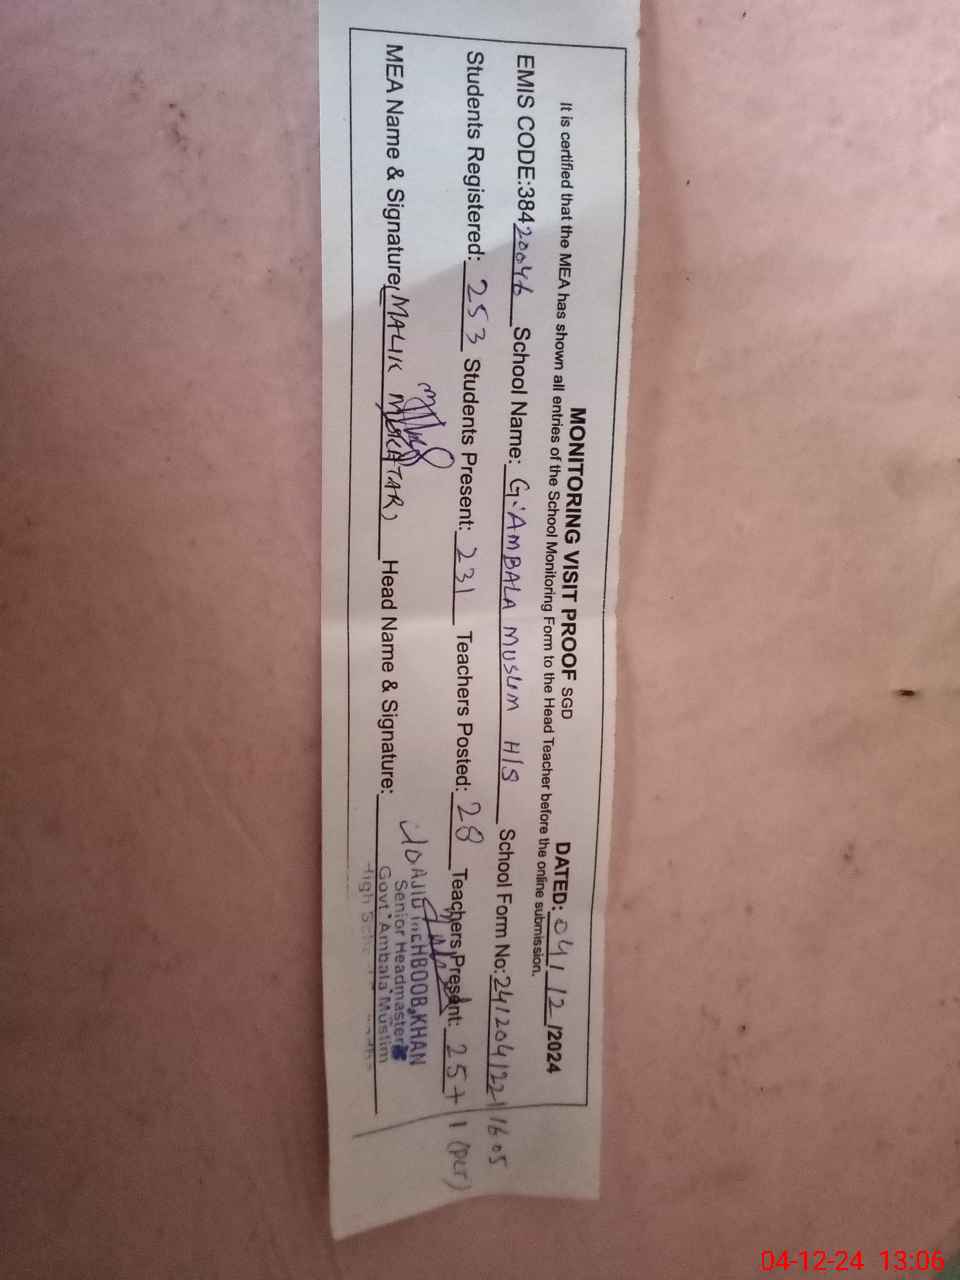 MONITORING VISIT PROOF SGD DATED: 04/12/2024
It is certified that the MEA has shown all entries of the School Monitoring Form to the Head Teacher before the online submission.
EMIS CODE:38420046 School Name: G. AMBALA MUSLIM H/S School Form No:
Students Registered: 253 Students Present: 231 Teachers Posted: 28 Teachers Present: 25+1
MEA Name & Signature (MALIK MUKHTAR) Head Name & Signature:
KHAN
Senior Headmaster
Govt. Ambala Muslim
High
04-12-24 13:06